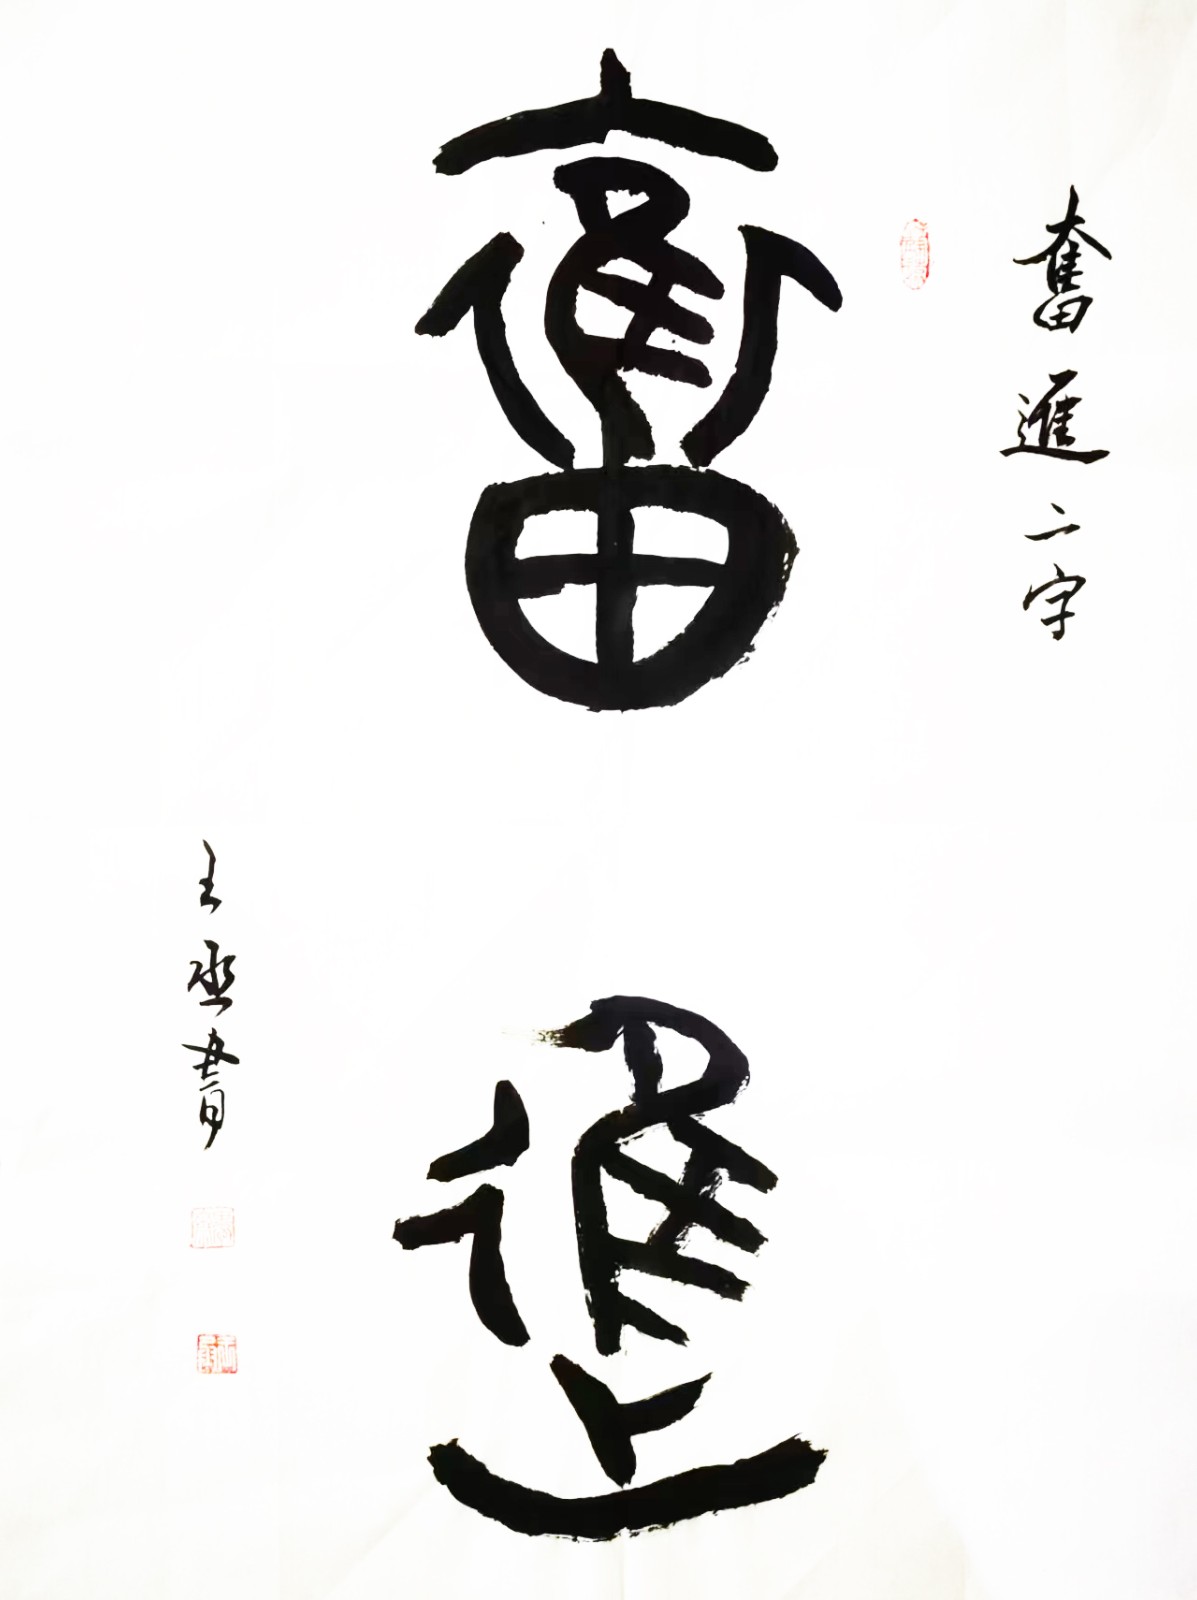 奮進二字
奮
進
王丞書